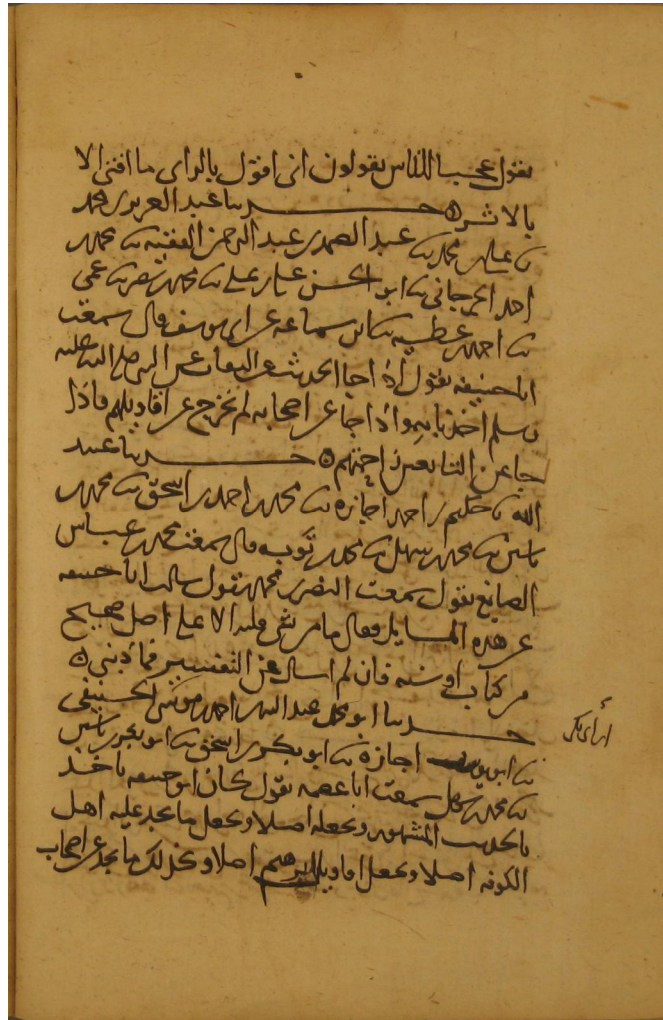 يقول عجبا للناس يقولون انى اقول بالراى ما افتى الا
بالاثر ۞ حدثنا عبد العزيز محمد
بن على محمد بن عبد الصمد عبد الرحمن الفقيه بن محمد
احمد الجرجانى بن ابو الحسن على بن محمد نصر بن
بن احمد عطيه بن سماعه عن ابى يوسف قال سمعت
ابا حنيفه يقول اذا جا الحديث عن الثقات عن النبى صلى الله عليه
وسلم اخذنا به واذا جا عن اصحابه لم نخرج عن اقاويلهم فاذا
جا عن التابعين زاحمتهم ۞ حدثنا عبيد
الله بن حكيم احمد اجازه بن محمد احمد اسحق بن محمد
ياسين بن محمد سهل بن محمد قال سمعت محمد عباس
الصايغ يقول سمعت النضر محمد يقول سالت ابا حنيفه
عن هذه المسايل فقال ما من شى قلته الا على اصل صحيح
من كتاب او سنه فان لم اسال عن التفسير فما ذنبى ۞
حدثنا ابو محمد عبد الله احمد موسى الحنيفى
بن ابو اجازه بن ابو بكر اسحق بن ابو بكر ياسين
بن محمد سهل سمعت ابا عصمه يقول كان ابو حنيفه ياخذ
بالحديث المشهور ويجعله اصلا ويجعل ما يجد عليه اهل
الكوفه اصلا ويجعل اقاويل ابرهيم اصلا وكذلك ما يجد عن اصحاب